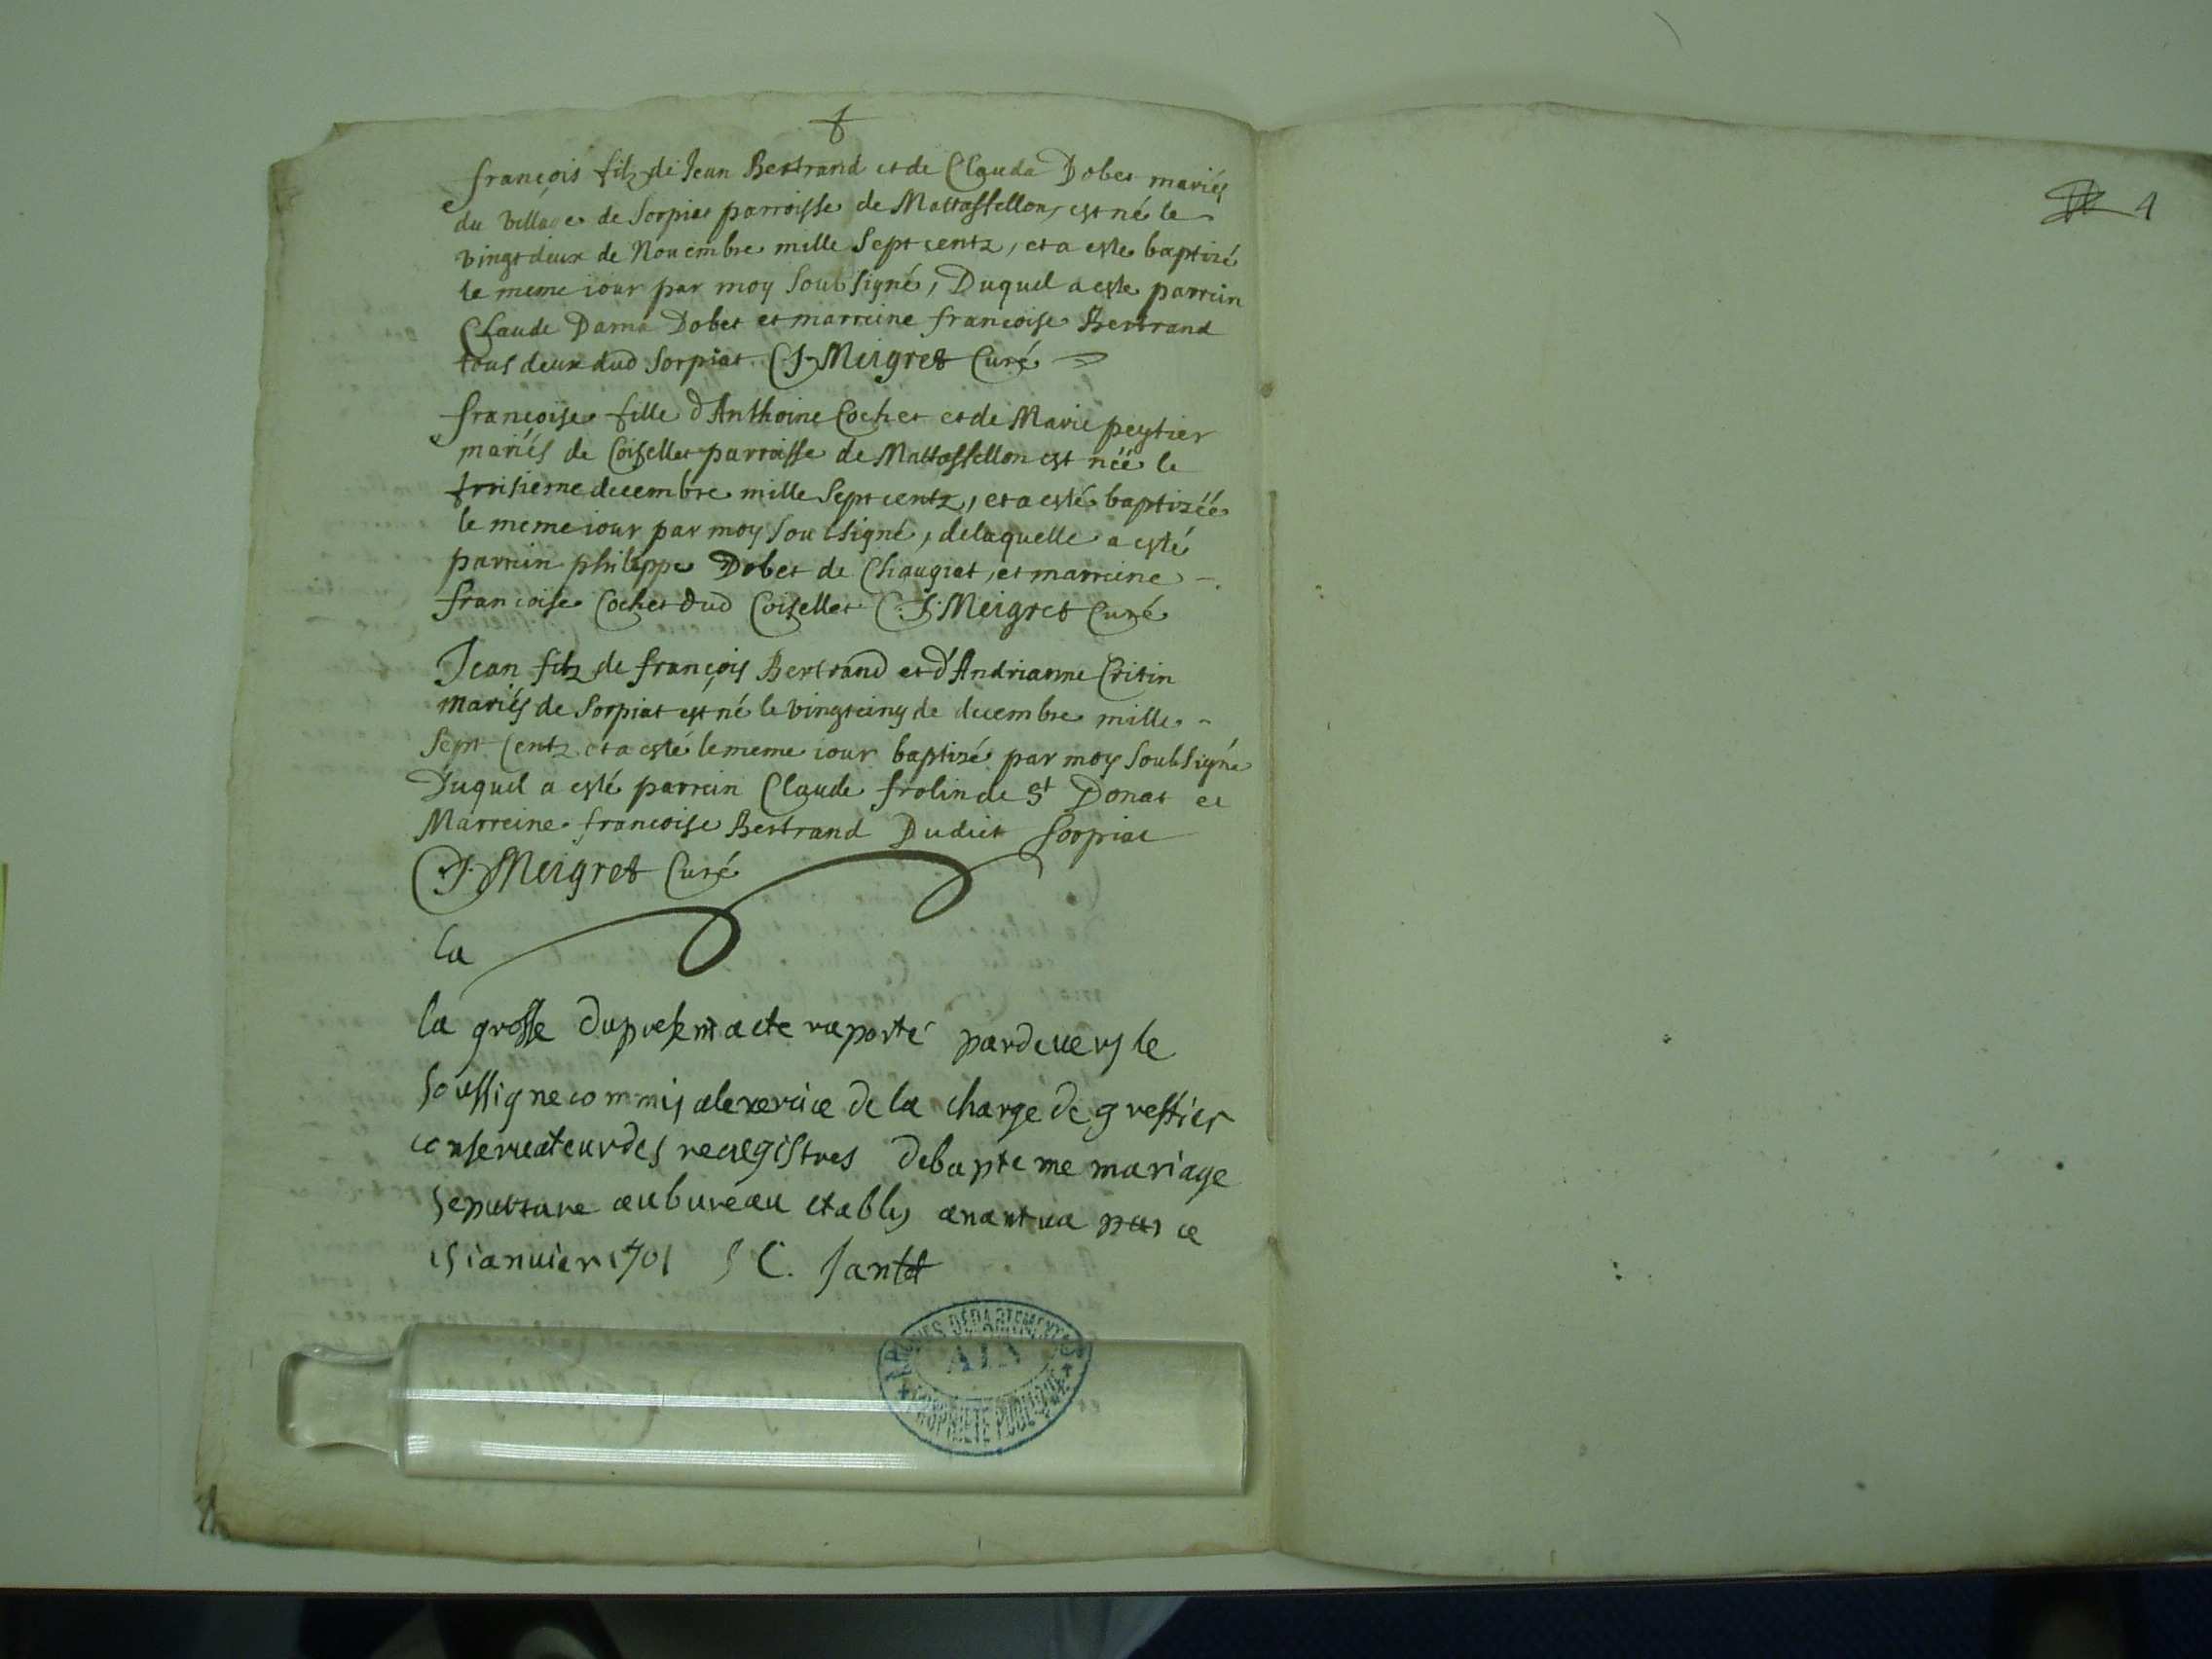 françois filz de Jean Bertrand et de Clauda Dobet mariés
du village de Sorpiat parroisse de Mattassellon, est né le
vingt deux de Nouembre mille Sept centz, et a este baptizé
le meme iour par moy Soubsigné, Duquel a este parrein
Claude Dama Dobet et marreine francoise Bertrand
tous deux dud Sorpiat. J. Meigret Curé
françoise fille d'Anthoine Cochet et de Marie peytier
mariés de Coisellet parroisse de Mattassellon est néé le
troisieme decembre mille Sept centz, et a esté baptizéé
le meme iour par moy Soubsigné, delaquelle a esté
parrein philippe Dobet de Chaugiat, et marreine
francoise Cochet dud Coisellet J. Meigret Curé
Jean filz de françois Bertrand et d'Andrianne Critin
mariés de Sorpiat est né le vingtcinq de decembre mille
Sept Centz et a esté le meme iour baptizé par moy Soubsigné
Duquel a esté parrein Claude frolin de St Donat et
Marreine francoise Bertrand Dudict Sorpiat
J. Meigret Curé
la
la grosse du present acte raporté pardeuers le
soussigne commis a lexercice de la charge de greffier
conseruateur des reregistres de bapteme mariage
sepulture au bureau etably a nantua ce
15 ianuier 1701 C. Jantet
ARCHIVES DÉPARTEMENTALES
AIN
PROPRIÉTÉ PUBLIQUE
4